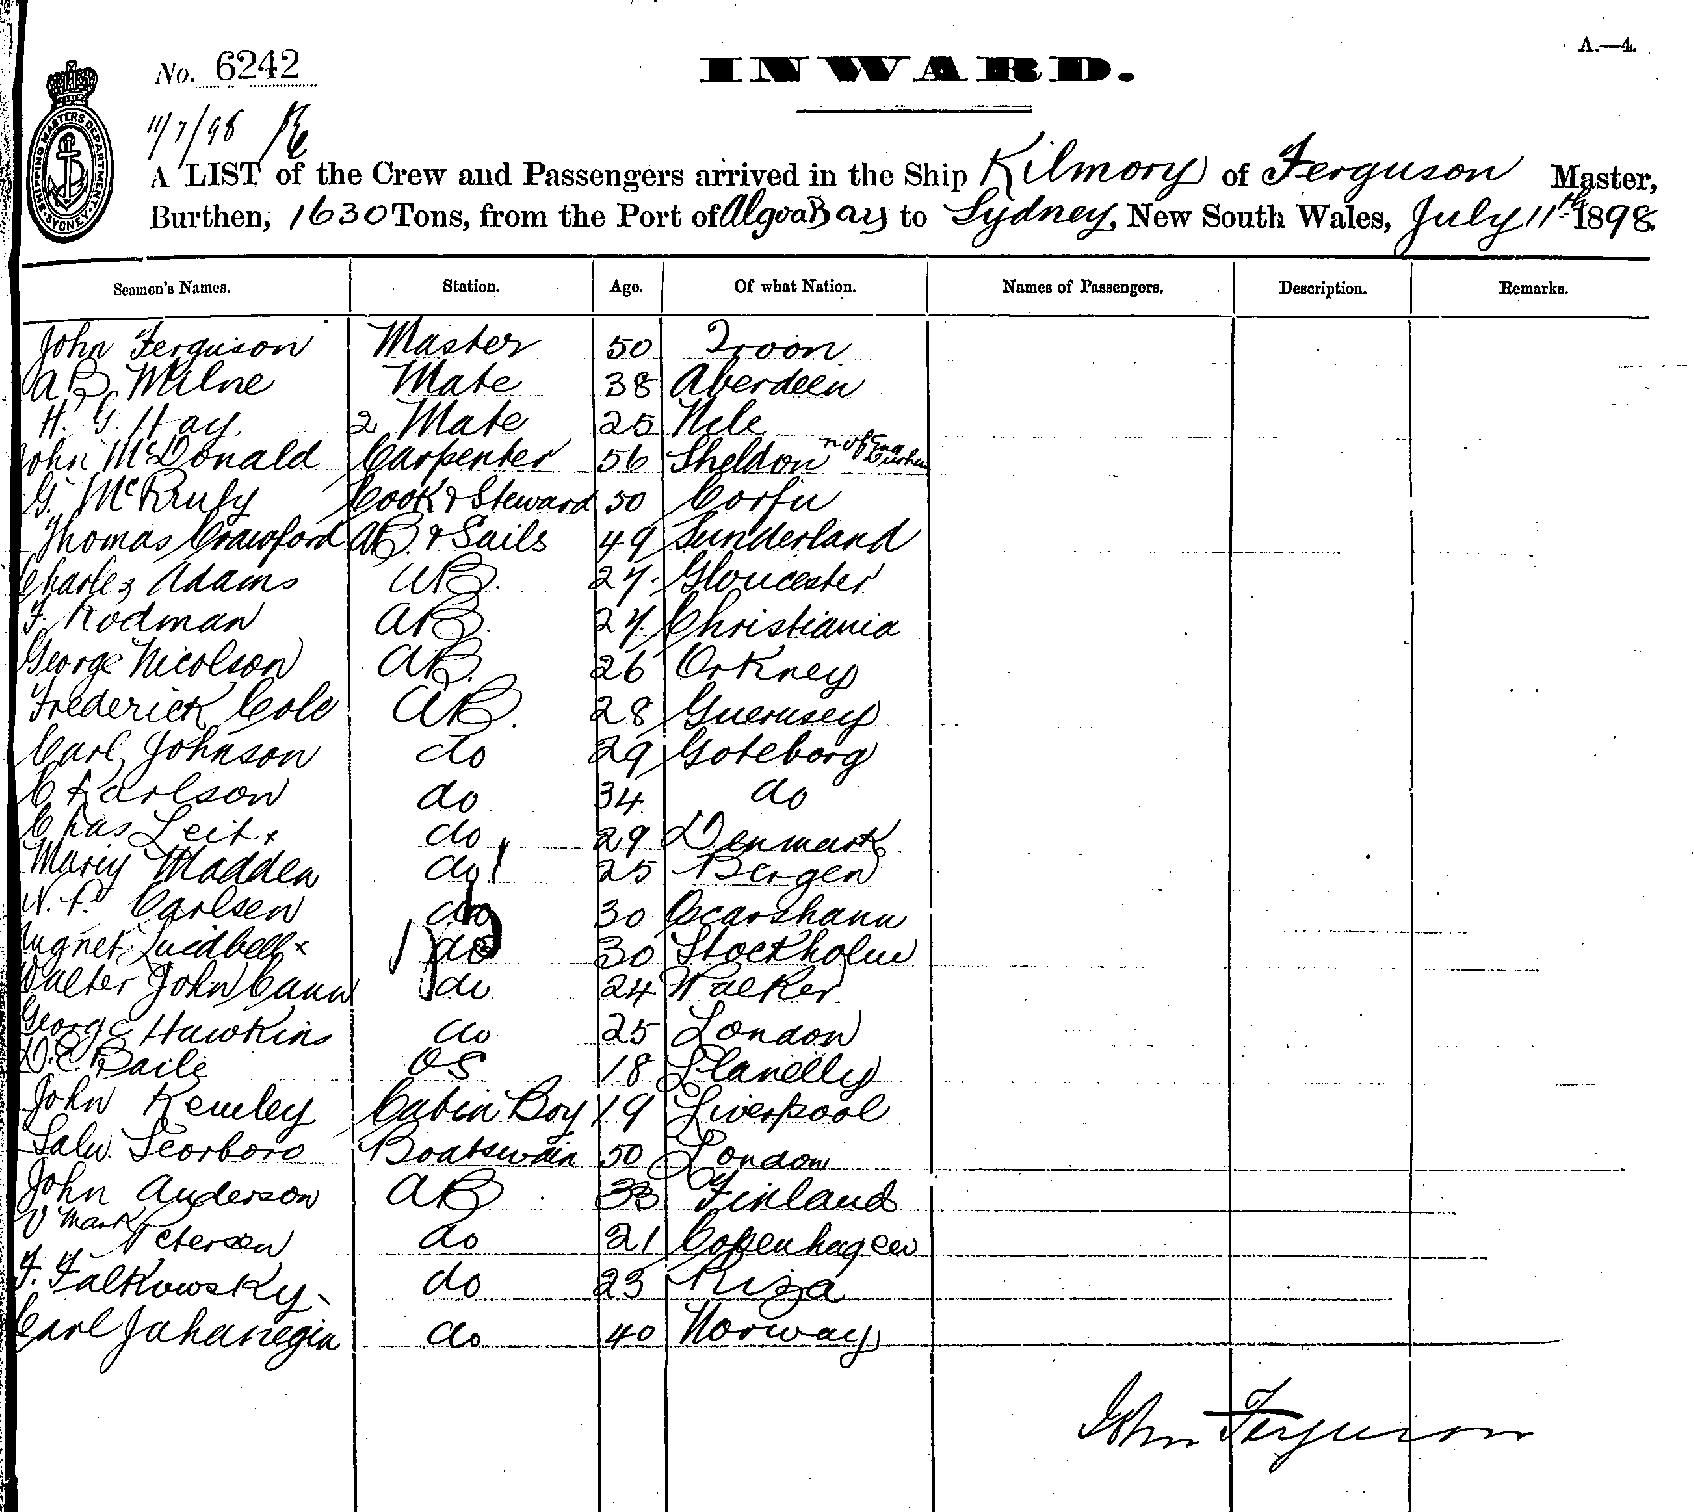 A.—4.
No. 6242
INWARD.
11/7/98
A LIST of the Crew and Passengers arrived in the Ship Kilmory of Ferguson Master,
Burthen, 1630 Tons, from the Port of Algoa Bay to Sydney, New South Wales, July 11th 1898
Seamen's Names. Station. Age. Of what Nation. Names of Passengers. Description. Remarks.
John Ferguson Master 50 Troon
A B Milne Mate 38 Aberdeen
H. G. Hay 2 Mate 25
John McDonald Carpenter 56 Sheldon
G. Cook & Steward 50 Corfu
Thomas Crawford AB & Sails 49 Sunderland
Charles Adams AB. 27 Gloucester
F. Rodman AB. 27 Christiania
George Nicolson AB. 26 Orkney
Frederick Cole AB. 28 Guernsey
Carl Johnson do 29 Goteborg
C Karlson do 34 do
Chas Leit x do 29 Denmark
Madden do 25 Bergen
N. P. Carlsen do 30
do 30 Stockholm
Walter John Cann do 24 Walker
George Hawkins do 25 London
D. E. Baile OS 18 Llanelly
John Kemley Cabin Boy 19 Liverpool
Boatswain 50 London
John Anderson AB 33 Finland
Petersen do 21 Copenhagen
F. Falkowsky do 23 Riga
Carl do 40 Norway
John Ferguson